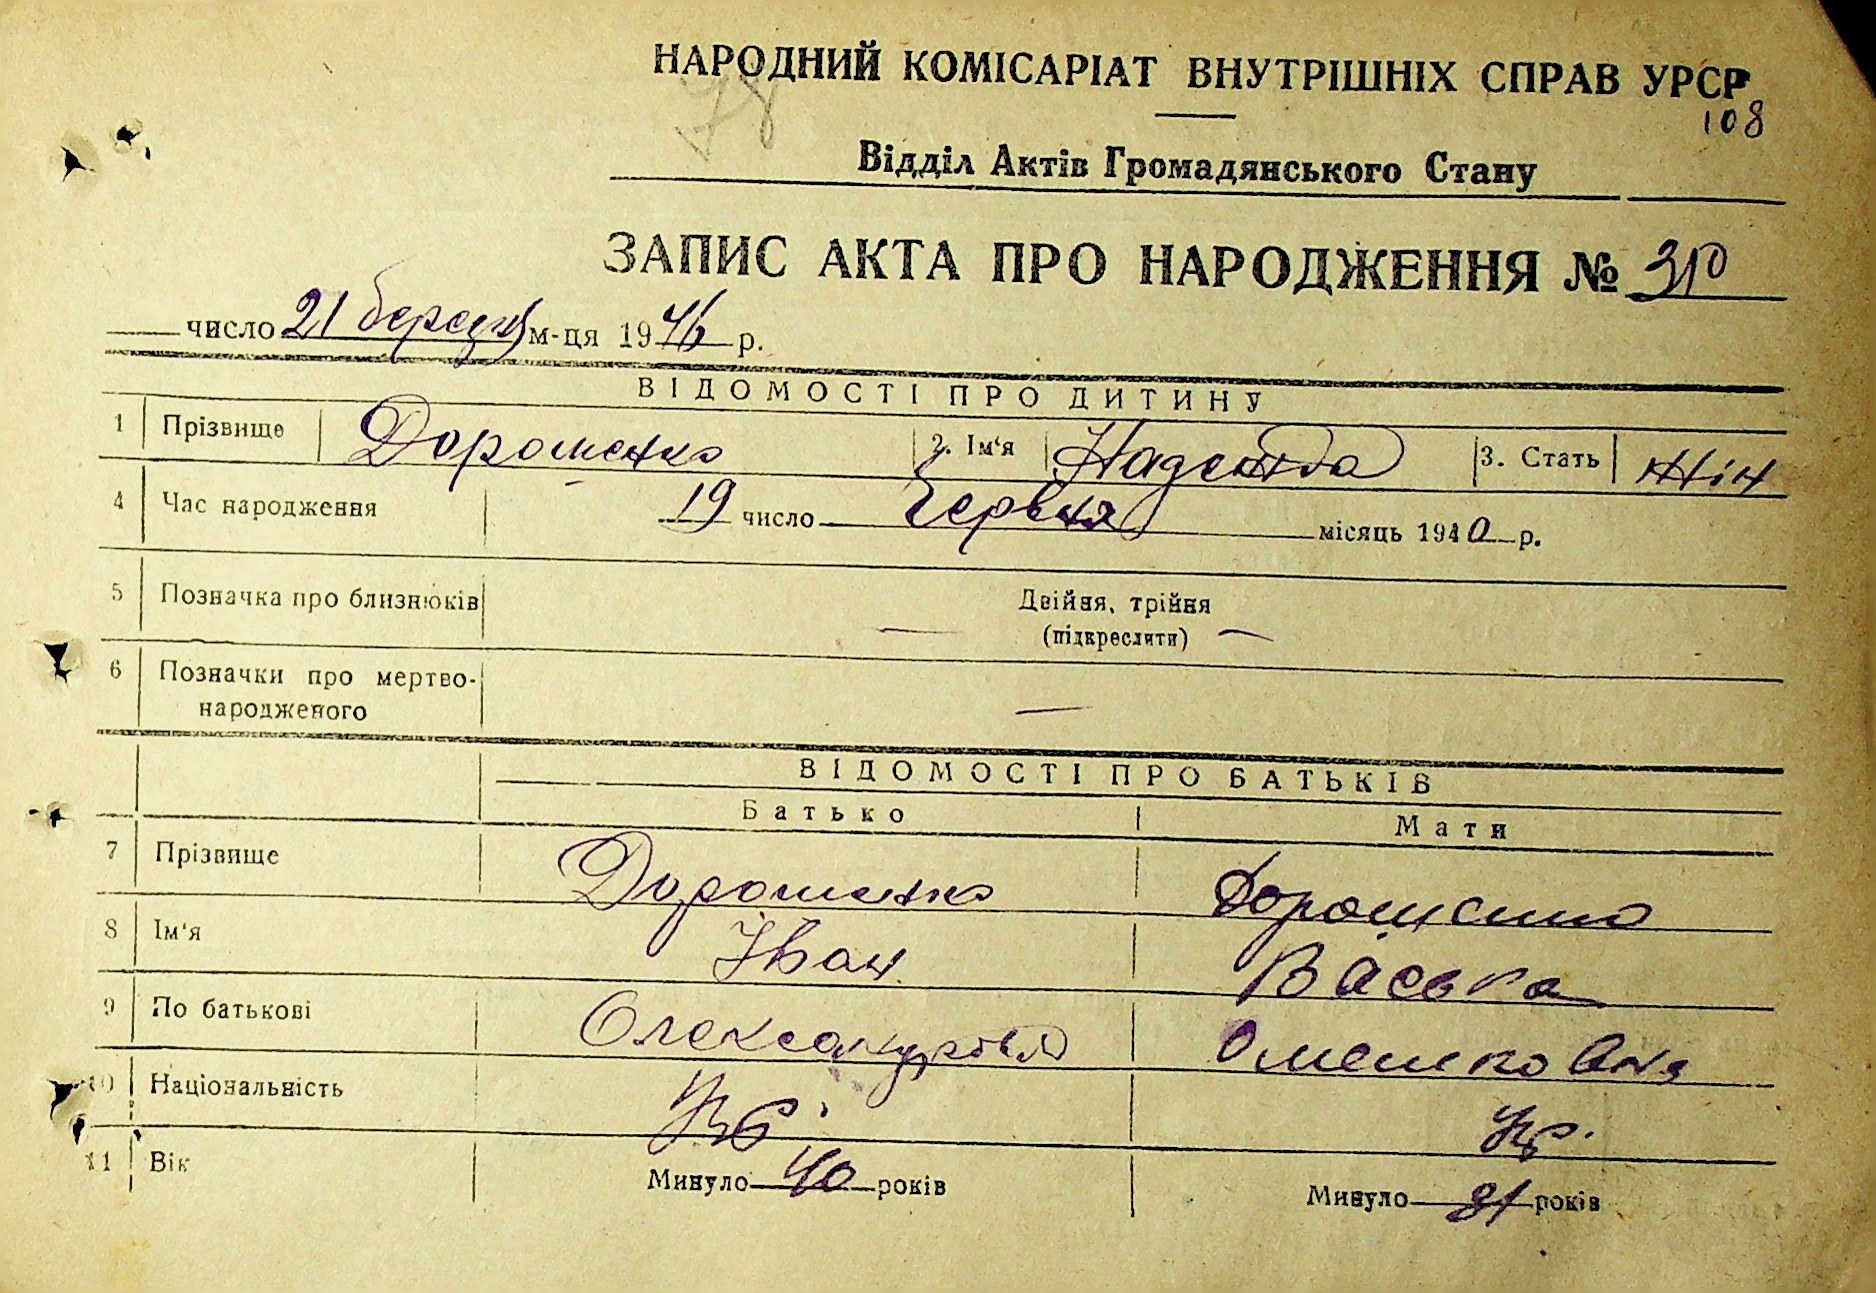 НАРОДНИЙ КОМІСАРІАТ ВНУТРІШНІХ СПРАВ УРСР
78
108
Відділ Актів Громадянського Стану
ЗАПИС АКТА ПРО НАРОДЖЕННЯ № 310
число 21 березня м-ця 1946 р.
ВІДОМОСТІ ПРО ДИТИНУ
1 Прізвище Дорошенко 2. Ім'я Надежда 3. Стать жін
4 Час народження 19 число Червня місяць 1940 р.
5 Позначка про близнюків Двійня, трійня
(підкреслити)
6 Позначки про мертво-
народженого —
ВІДОМОСТІ ПРО БАТЬКІВ
Батько Мати
7 Прізвище Дорошенко Дорошенко
8 Ім'я Іван Васька
9 По батькові Олександрович
10 Національність Укр Укр.
11 Вік Минуло 40 років Минуло 31 років